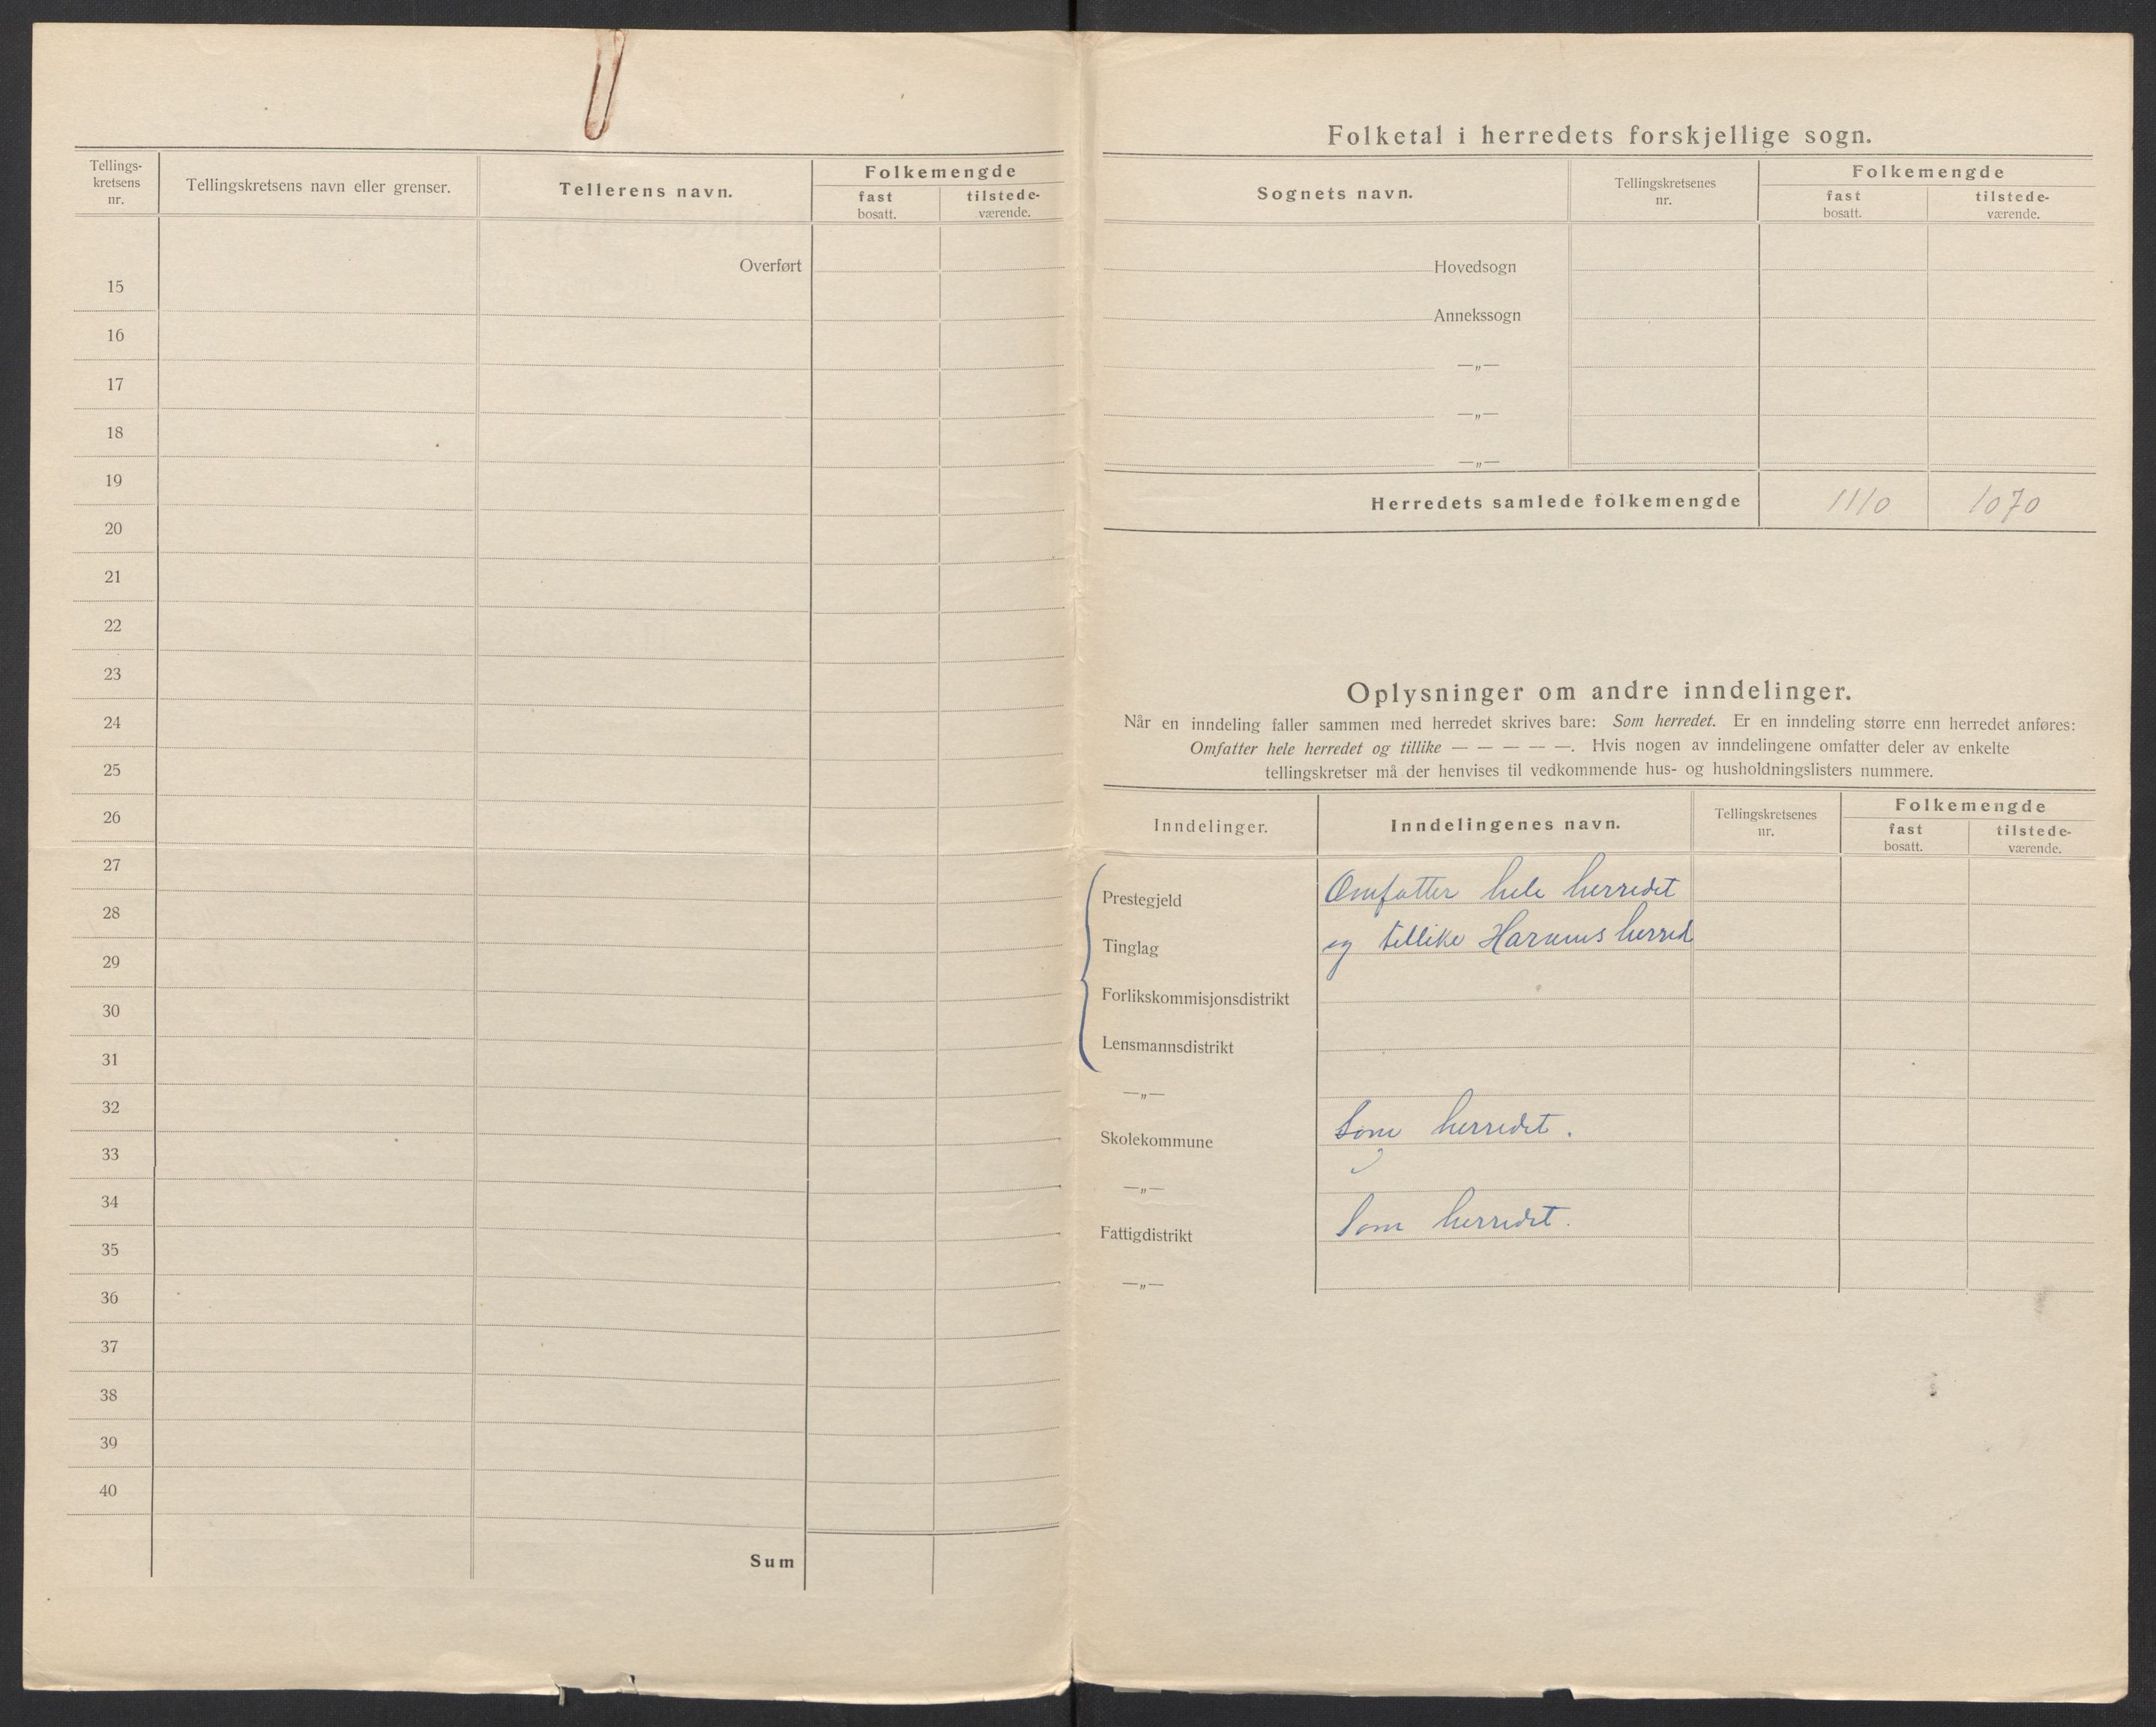 Tellings-
kretsens
nr.
Tellingskretsens navn eller grenser.
Tellerens navn.
Folkemengde
fast
bosatt.
tilstede-
værende.
Overført
15
16
17
18
19
20
21
22
23
24
25
26
27
28
29
30
31
32
33
34
35
36
37
38
39
40
Sum
Folketal i herredets forskjellige sogn.
Sognets navn.
Tellingskretsenes
nr.
Folkemengde
fast
bosatt.
tilstede-
værende.
Hovedsogn
Annekssogn
—„—
—„—
—„—
Herredets samlede folkemengde 1110 1070
Oplysninger om andre inndelinger.
Når en inndeling faller sammen med herredet skrives bare: Som herredet. Er en inndeling større enn herredet anføres:
Omfatter hele herredet og tillike — — — — —. Hvis nogen av inndelingene omfatter deler av enkelte
tellingskretser må der henvises til vedkommende hus- og husholdningslisters nummere.
Inndelinger.
Inndelingenes navn.
Tellingskretsenes
nr.
Folkemengde
fast
bosatt.
tilstede-
værende.
Prestegjeld Omfatter hele herredet
Tinglag og tillike Harams herred
Forlikskommisjonsdistrikt
Lensmannsdistrikt
—„—
Skolekommune Som herredet.
—„—
Fattigdistrikt Som herredet.
—„—